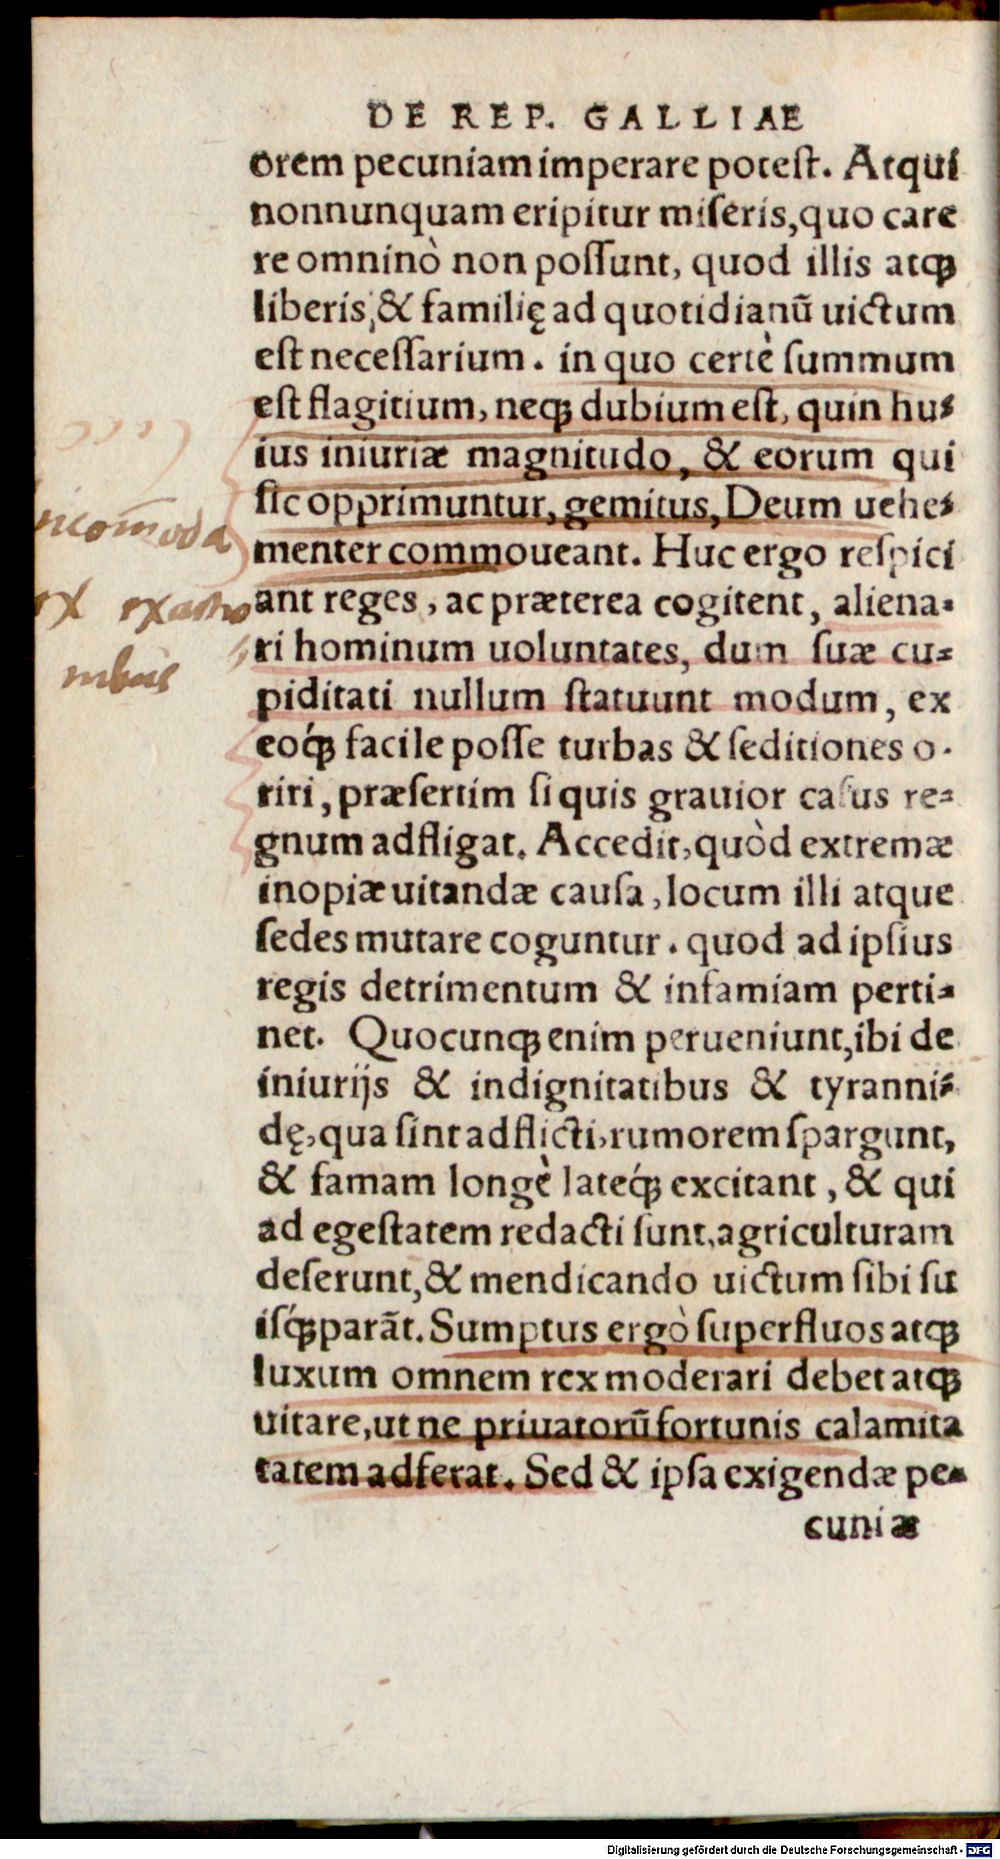 DE REP. GALLIAE
orem pecuniam imperare potest. Atqui
nonnunquam eripitur miseris, quo care
re omninò non possunt, quod illis atq̃
liberis, & familię ad quotidianũ uictum
est necessarium. in quo certè summum
est flagitium, neq̃ dubium est, quin hu-
ius iniuriæ magnitudo, & eorum qui
sic opprimuntur, gemitus, Deum uehe-
menter commoueant. Huc ergo respici
ant reges, ac præterea cogitent, aliena-
ri hominum uoluntates, dum suæ cu-
piditati nullum statuunt modum, ex
eoq́ꝫ facile posse turbas & seditiones o-
riri, præsertim si quis grauior casus re-
gnum adfligat. Accedit, quòd extremæ
inopiæ uitandæ causa, locum illi atque
sedes mutare coguntur. quod ad ipsius
regis detrimentum & infamiam perti-
net. Quocunqꝫ enim perueniunt, ibi de
iniurijs & indignitatibus & tyranni-
dę, qua sint adflicti, rumorem spargunt,
& famam longè lateq́ꝫ excitant, & qui
ad egestatem redacti sunt, agriculturam
deserunt, & mendicando uictum sibi su
isq́ꝫ parãt. Sumptus ergò superfluos atqꝫ
luxum omnem rex moderari debet atqꝫ
uitare, ut ne priuatorũ fortunis calamita
tatem adferat. Sed & ipsa exigendæ pe-
cuniæ
incom̄oda
ex exactio
nibus
Digitalisierung gefördert durch die Deutsche Forschungsgemeinschaft - DFG